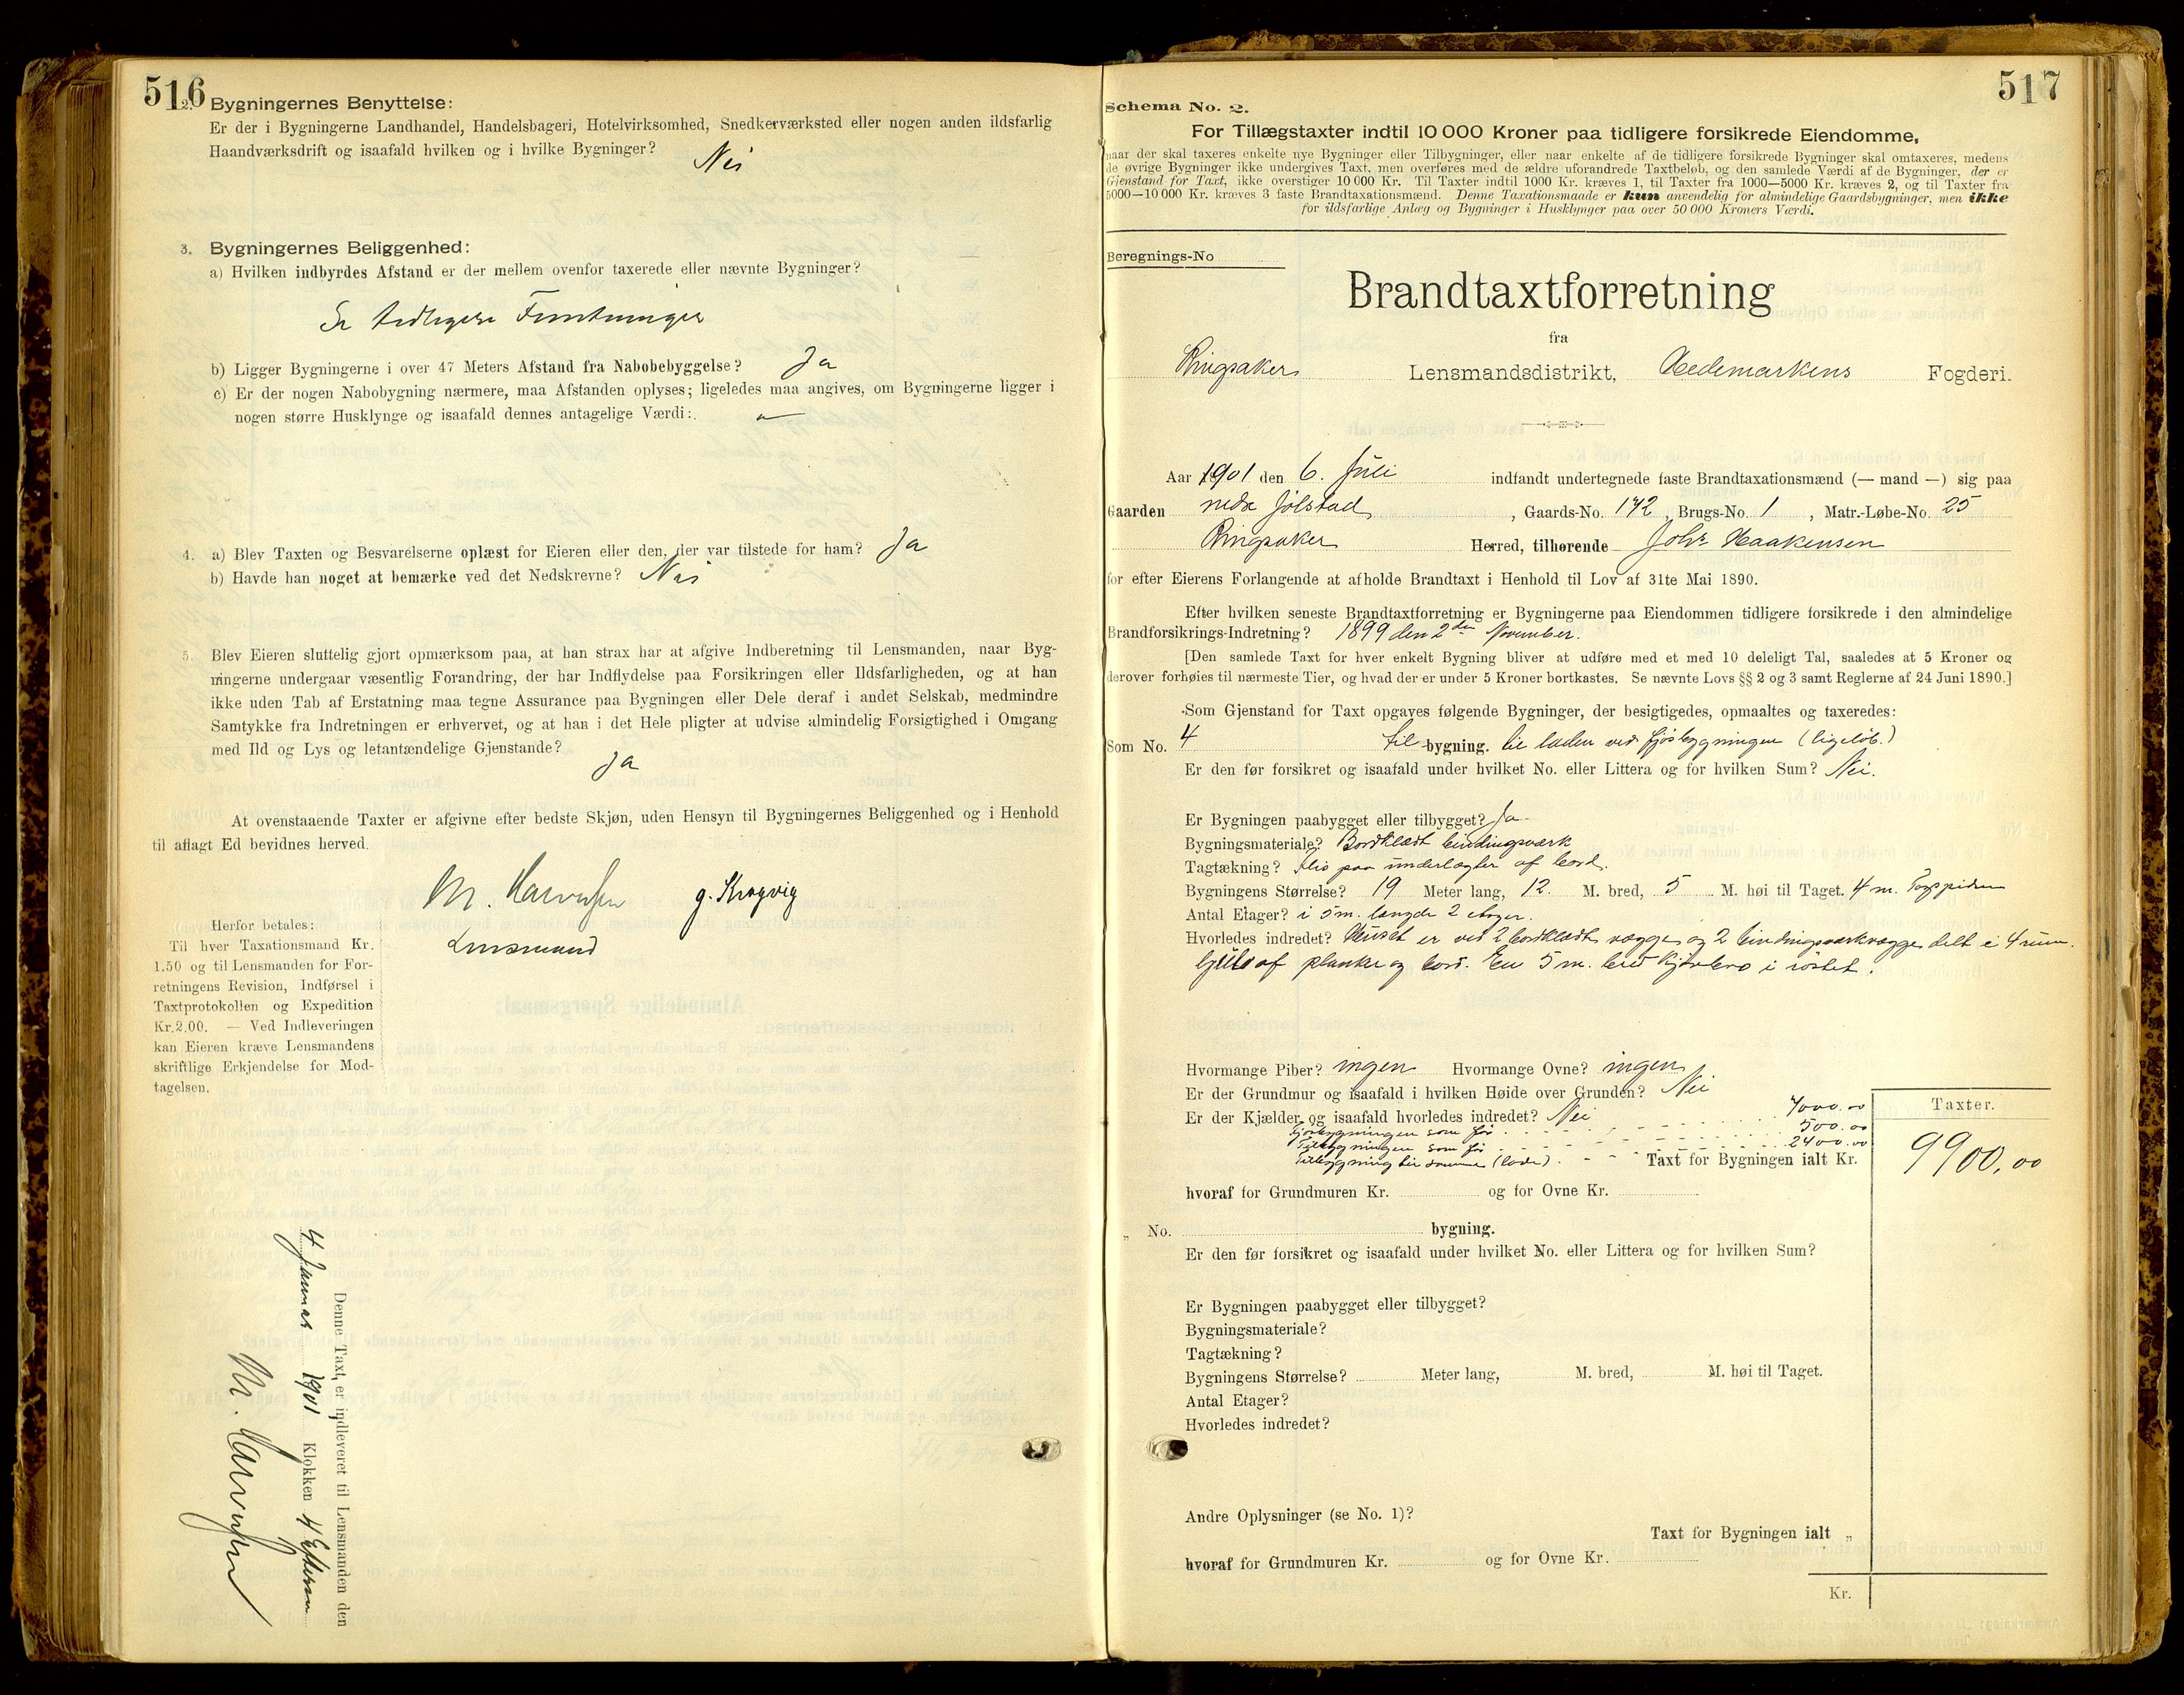 516
2. Bygningernes Benyttelse:
Er der i Bygningerne Landhandel, Handelsbageri, Hotelvirksomhed, Snedkerværksted eller nogen anden ildsfarlig
Haandværksdrift og isaafald hvilken og i hvilke Bygninger? Nei
3. Bygningernes Beliggenhed:
a) Hvilken indbyrdes Afstand er der mellem ovenfor taxerede eller nævnte Bygninger?
Se tidligere Forretninger
b) Ligger Bygningerne i over 47 Meters Afstand fra Nabobebyggelse? Ja
c) Er der nogen Nabobygning nærmere, maa Afstanden oplyses; ligeledes maa angives, om Bygningerne ligger i
nogen større Husklynge og isaafald dennes antagelige Værdi:
4. a) Blev Taxten og Besvarelserne oplæst for Eieren eller den, der var tilstede for ham? Ja
b) Havde han noget at bemærke ved det Nedskrevne? Nei
5. Blev Eieren sluttelig gjort opmærksom paa, at han strax har at afgive Indberetning til Lensmanden, naar Byg-
ningerne undergaar væsentlig Forandring, der har Indflydelse paa Forsikringen eller Ildsfarligheden, og at han
ikke uden Tab af Erstatning maa tegne Assurance paa Bygningen eller Dele deraf i andet Selskab, medmindre
Samtykke fra Indretningen er erhvervet, og at han i det Hele pligter at udvise almindelig Forsigtighed i Omgang
med Ild og Lys og letantændelige Gjenstande?
Ja
At ovenstaaende Taxter er afgivne efter bedste Skjøn, uden Hensyn til Bygningernes Beliggenhed og i Henhold
til aflagt Ed bevidnes herved.
M. g. Krogvig
Lensmand
Herfor betales:
Til hver Taxationsmand Kr.
1.50 og til Lensmanden for For-
retningens Revision, Indførsel i
Taxtprotokollen og Expedition
Kr. 2.00. — Ved Indleveringen
kan Eieren kræve Lensmandens
skriftlige Erkjendelse for Mod-
tagelsen.
Denne Taxt er indleveret til Lensmanden den
4 Januar 1901 Klokken 4 Efterm
M.
517
Schema No. 2.
For Tillægstaxter indtil 10 000 Kroner paa tidligere forsikrede Eiendomme,
naar der skal taxeres enkelte nye Bygninger eller Tilbygninger, eller naar enkelte af de tidligere forsikrede Bygninger skal omtaxeres, medens
de øvrige Bygninger ikke undergives Taxt, men overføres med de ældre uforandrede Taxtbeløb, og den samlede Værdi af de Bygninger, der er
Gjenstand for Taxt, ikke overstiger 10 000 Kr. Til Taxter indtil 1000 Kr. kræves 1, til Taxter fra 1000—5000 Kr. kræves 2, og til Taxter fra
5000—10 000 Kr. kræves 3 faste Brandtaxationsmænd. Denne Taxationsmaade er kun anvendelig for almindelige Gaardsbygninger, men ikke
for ildsfarlige Anlæg og Bygninger i Husklynger paa over 50 000 Kroners Værdi.
Beregnings-No
Brandtaxtforretning
fra
Ringsakers Lensmandsdistrikt, Hedemarkens Fogderi.
Aar 1901 den 6. Juli indfandt undertegnede faste Brandtaxationsmænd (— mand —) sig paa
Gaarden nedr Jølstad, Gaards-No. 142, Brugs-No. 1, Matr.-Løbe-No. 25
Ringsaker Herred, tilhørende Johs Haakensen
for efter Eierens Forlangende at afholde Brandtaxt i Henhold til Lov af 31te Mai 1890.
Efter hvilken seneste Brandtaxtforretning er Bygningerne paa Eiendommen tidligere forsikrede i den almindelige
Brandforsikrings-Indretning? 1899 den 2den November.
[Den samlede Taxt for hver enkelt Bygning bliver at udføre med et med 10 deleligt Tal, saaledes at 5 Kroner og
derover forhøies til nærmeste Tier, og hvad der er under 5 Kroner bortkastes. Se nævnte Lovs §§ 2 og 3 samt Reglerne af 24 Juni 1890.]
Som Gjenstand for Taxt opgaves følgende Bygninger, der besigtigedes, opmaaltes og taxeredes:
Som No. 4 til bygning. til laden ved fjøsbygningen (ligeløb.)
Er den før forsikret og isaafald under hvilket No. eller Littera og for hvilken Sum? Nei.
Er Bygningen paabygget eller tilbygget? Ja
Bygningsmateriale? Bordklædt bindingsværk
Tagtækning? flis paa underlægter af bord.
Bygningens Størrelse? 19 Meter lang, 12. M. bred, 5 M. høi til Taget. 4 m.
Antal Etager? i 5 m. længde 2 etager.
Hvorledes indredet? Huset er ved 2 bordklædte vægge og 2 bindingsværkvægge delt i 4 rum.
af planker og bord. En 5 m. bred kjørebro i røstet.
Hvormange Piber? ingen Hvormange Ovne? ingen
Er der Grundmur og isaafald i hvilken Høide over Grunden? Nei
Er der Kjælder og isaafald hvorledes indredet? Nei
Fjøsbygningen som før 7000.00
Tilbygningen som før 500.00
Tilbygning til samme (lade) 2400.00
Taxt for Bygningen ialt Kr.
Taxter.
9900,00
hvoraf for Grundmuren Kr. og for Ovne Kr.
„ No. bygning.
Er den før forsikret og isaafald under hvilket No. eller Littera og for hvilken Sum?
Er Bygningen paabygget eller tilbygget?
Bygningsmateriale?
Tagtækning?
Bygningens Størrelse? Meter lang, M. bred, M. høi til Taget.
Antal Etager?
Hvorledes indredet?
Andre Oplysninger (se No. 1)?
Taxt for Bygningen ialt „
hvoraf for Grundmuren Kr. og for Ovne Kr.
Kr.